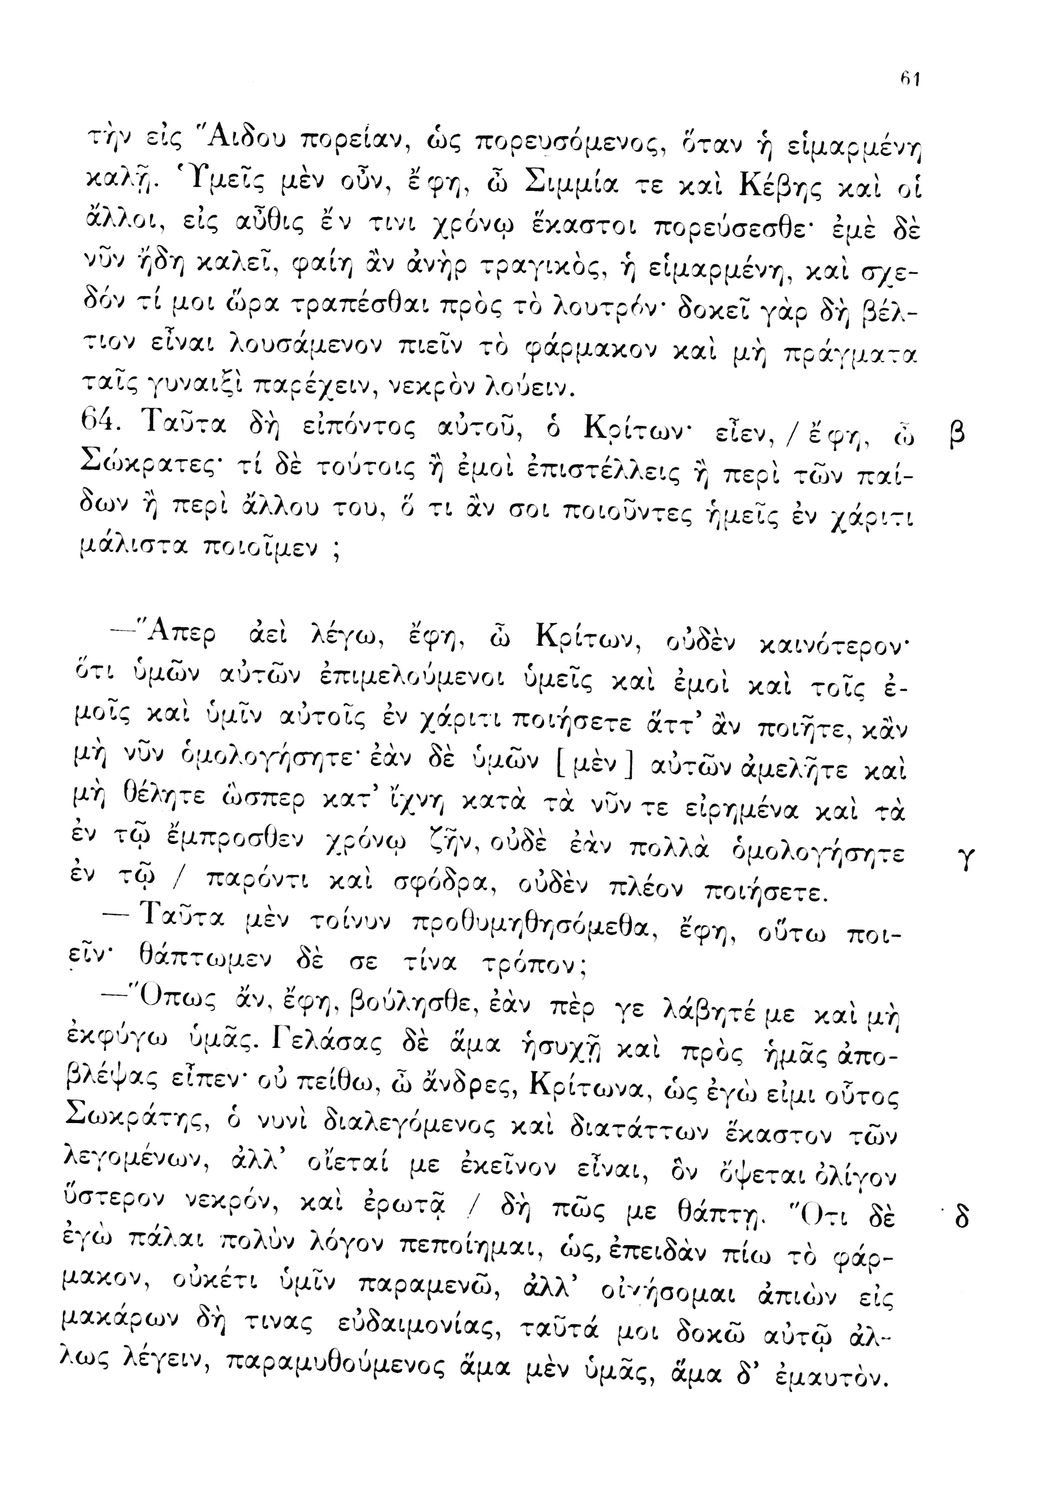 61
τὴν εἰς Ἅιδου πορείαν, ὡς πορευσόμενος, ὅταν ἡ εἱμαρμένη
καλῇ. Ὑμεῖς μὲν οὖν, ἔφη, ὦ Σιμμία τε καὶ Κέβης καὶ οἱ
ἄλλοι, εἰς αὖθις ἔν τινι χρόνῳ ἕκαστοι πορεύσεσθε· ἐμὲ δὲ
νῦν ἤδη καλεῖ, φαίη ἂν ἀνὴρ τραγικὸς, ἡ εἱμαρμένη, καὶ σχε-
δόν τί μοι ὥρα τραπέσθαι πρὸς τὸ λουτρόν· δοκεῖ γὰρ δὴ βέλ-
τιον εἶναι λουσάμενον πιεῖν τὸ φάρμακον καὶ μὴ πράγματα
ταῖς γυναιξὶ παρέχειν, νεκρὸν λούειν.
64. Ταῦτα δὴ εἰπόντος αὐτοῦ, ὁ Κρίτων· εἶεν, / ἔφη, ὦ β
Σώκρατες· τί δὲ τούτοις ἢ ἐμοὶ ἐπιστέλλεις ἢ περὶ τῶν παί-
δων ἢ περὶ ἄλλου του, ὅ τι ἄν σοι ποιοῦντες ἡμεῖς ἐν χάριτι
μάλιστα ποιοῖμεν ;
—Ἅπερ ἀεὶ λέγω, ἔφη, ὦ Κρίτων, οὐδὲν καινότερον·
ὅτι ὑμῶν αὐτῶν ἐπιμελούμενοι ὑμεῖς καὶ ἐμοὶ καὶ τοῖς ἐ-
μοῖς καὶ ὑμῖν αὐτοῖς ἐν χάριτι ποιήσετε ἅττ’ ἂν ποιῆτε, κἂν
μὴ νῦν ὁμολογήσητε· ἐὰν δὲ ὑμῶν [ μὲν ] αὐτῶν ἀμελῆτε καὶ
μὴ θέλητε ὥσπερ κατ’ ἴχνη κατὰ τὰ νῦν τε εἰρημένα καὶ τὰ
ἐν τῷ ἔμπροσθεν χρόνῳ ζῆν, οὐδὲ ἐὰν πολλὰ ὁμολογήσητε γ
ἐν τῷ / παρόντι καὶ σφόδρα, οὐδὲν πλέον ποιήσετε.
— Ταῦτα μὲν τοίνυν προθυμηθησόμεθα, ἔφη, οὕτω ποι-
εῖν· θάπτωμεν δὲ σε τίνα τρόπον;
—Ὅπως ἄν, ἔφη, βούλησθε, ἐὰν πὲρ γε λάβητέ με καὶ μὴ
ἐκφύγω ὑμᾶς. Γελάσας δὲ ἅμα ἡσυχῇ καὶ πρὸς ἡμᾶς ἀπο-
βλέψας εἶπεν· οὐ πείθω, ὦ ἄνδρες, Κρίτωνα, ὡς ἐγὼ εἰμι οὗτος
Σωκράτης, ὁ νυνὶ διαλεγόμενος καὶ διατάττων ἕκαστον τῶν
λεγομένων, ἀλλ’ οἴεταί με ἐκεῖνον εἶναι, ὃν ὄψεται ὀλίγον
ὕστερον νεκρόν, καὶ ἐρωτᾷ / δὴ πῶς με θάπτῃ. Ὅτι δὲ δ
ἐγὼ πάλαι πολὺν λόγον πεποίημαι, ὡς, ἐπειδὰν πίω τὸ φάρ-
μακον, οὐκέτι ὑμῖν παραμενῶ, ἀλλ’ οἰχήσομαι ἀπιὼν εἰς
μακάρων δὴ τινας εὐδαιμονίας, ταῦτά μοι δοκῶ αὐτῷ ἄλ-
λως λέγειν, παραμυθούμενος ἅμα μὲν ὑμᾶς, ἅμα δ’ ἐμαυτὸν.